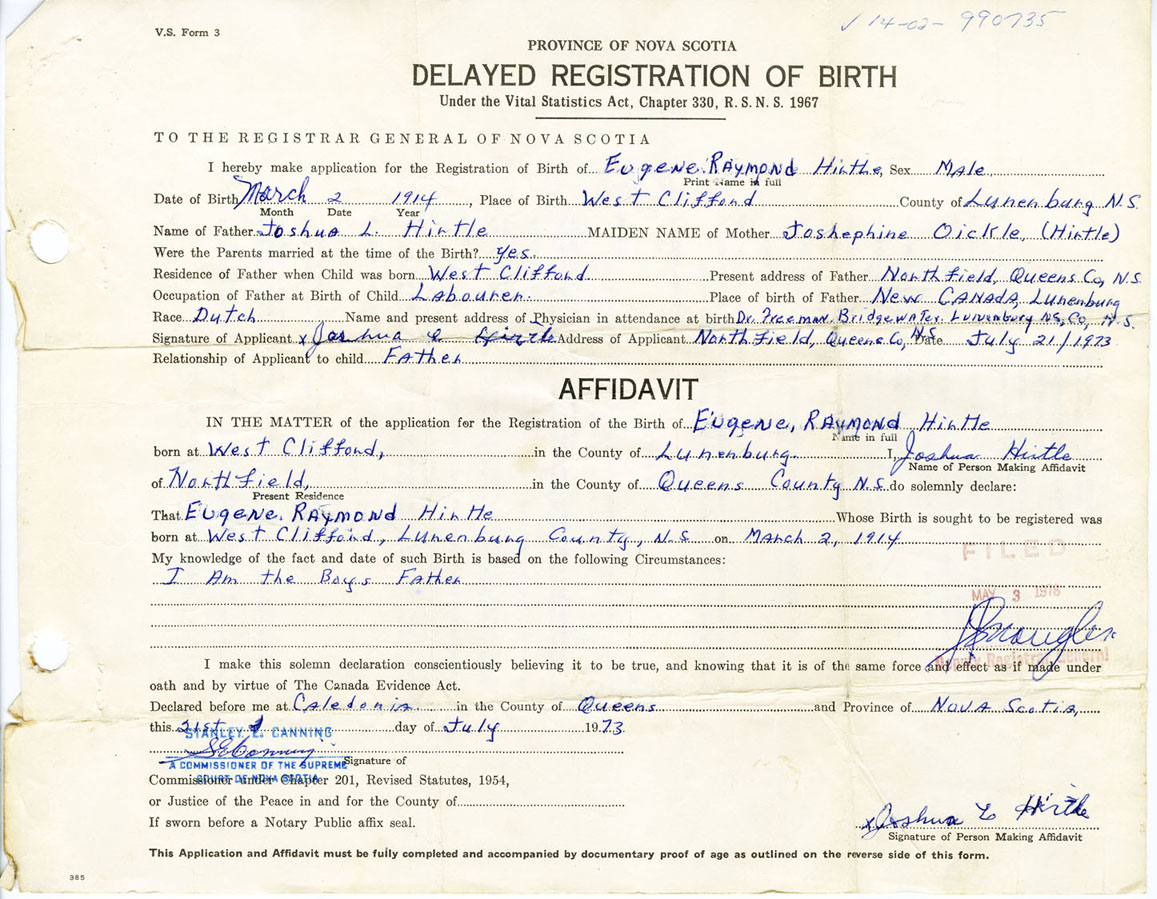 V.S. Form 3
✓ 14-02- 990735
PROVINCE OF NOVA SCOTIA
DELAYED REGISTRATION OF BIRTH
Under the Vital Statistics Act, Chapter 330, R.S.N.S. 1967
TO THE REGISTRAR GENERAL OF NOVA SCOTIA
I hereby make application for the Registration of Birth of Eugene. RAYMOND Hirtle, Sex MAle
Print Name in full
Date of Birth March 2 1914, Place of Birth West Clifford County of Lunenburg N.S.
Month Date Year
Name of Father Joshua L. Hirtle MAIDEN NAME of Mother Joshephine Oickle, (Hirtle)
Were the Parents married at the time of the Birth? yes.
Residence of Father when Child was born West Clifford Present address of Father Northfield, Queens Co, N.S.
Occupation of Father at Birth of Child Labourer. Place of birth of Father New CANADA, Lunenburg
Race Dutch Name and present address of Physician in attendance at birth Dr. Freeman. Bridgewater. Lunenburg NS, Co, N.S.
Signature of Applicant x Joshua L Hirtle Address of Applicant Northfield, Queens Co, N.S. Date July 21/1973
Relationship of Applicant to child Father
AFFIDAVIT
IN THE MATTER of the application for the Registration of the Birth of Eugene, RAYMOND Hirtle
Name in full
born at West Clifford, in the County of Lunenburg. I, Joshua Hirtle
Name of Person Making Affidavit
of Northfield, in the County of Queens County N.S. do solemnly declare:
Present Residence
That Eugene RAYMOND Hirtle Whose Birth is sought to be registered was
born at West Clifford, Lunenburg County, N.S. on March 2, 1914
My knowledge of the fact and date of such Birth is based on the following Circumstances:
I Am the Boys Father
FILED
MAY 3 1978
Deputy Registrar General
I make this solemn declaration conscientiously believing it to be true, and knowing that it is of the same force and effect as if made under
oath and by virtue of The Canada Evidence Act.
Declared before me at Caledonia in the County of Queens and Province of NOVA Scotia,
this 21st day of July 1973
STANLEY E. CANNING
SE Canning
Signature of
A COMMISSIONER OF THE SUPREME
COURT OF NOVA SCOTIA
Commissioner under Chapter 201, Revised Statutes, 1954,
or Justice of the Peace in and for the County of
If sworn before a Notary Public affix seal.
x Joshua L Hirtle
Signature of Person Making Affidavit
This Application and Affidavit must be fully completed and accompanied by documentary proof of age as outlined on the reverse side of this form.
385